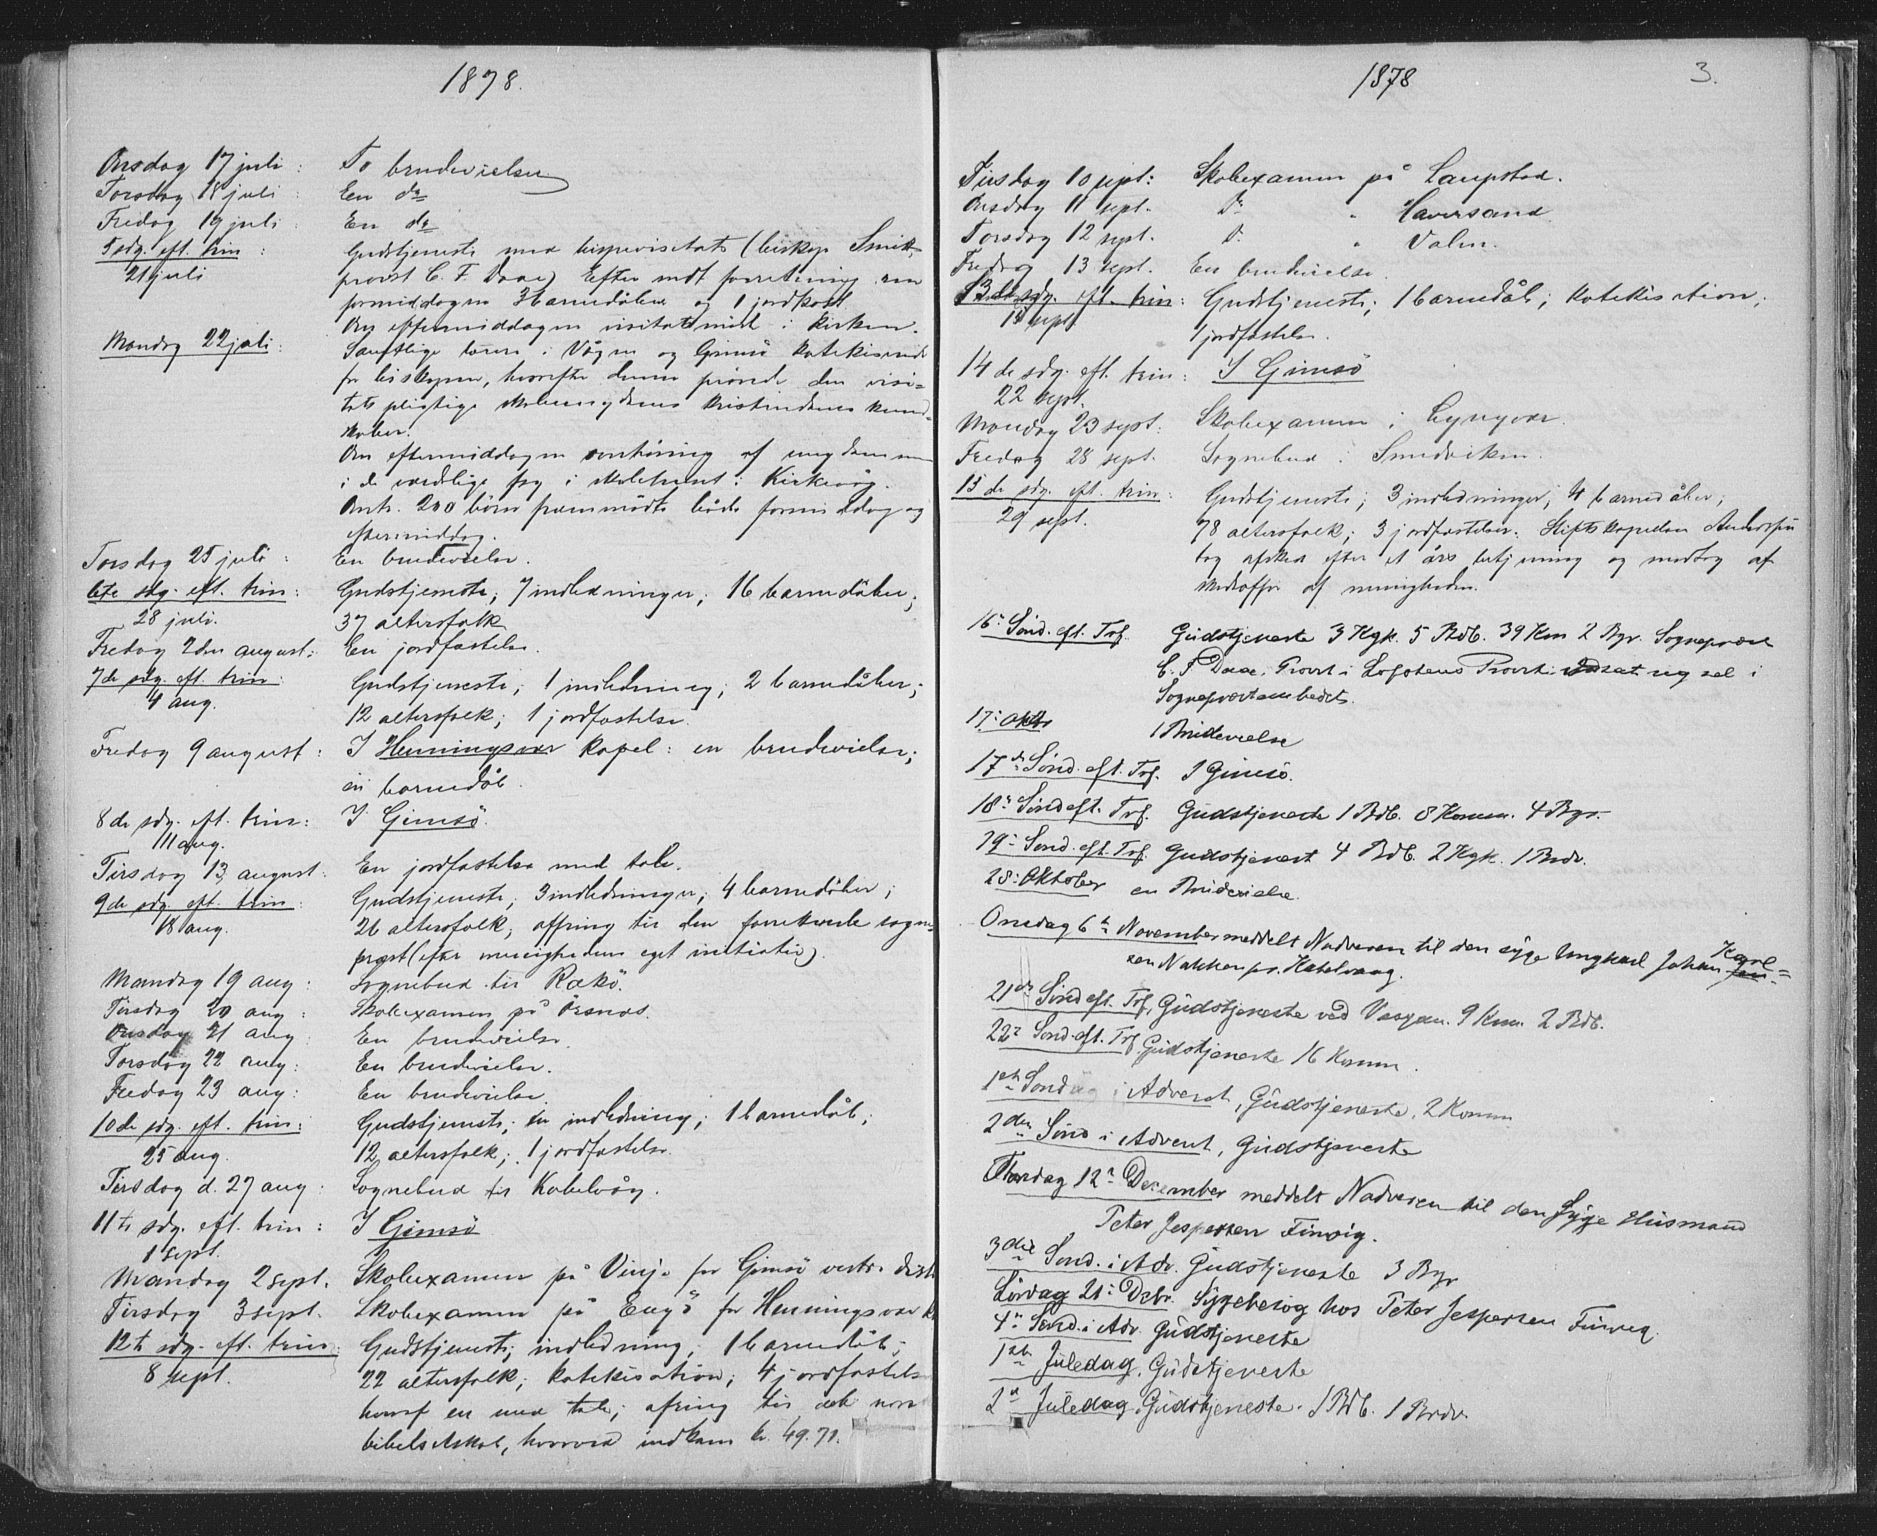 1878.
Onsdag 17 juli : To brudevielser
Torsdag 18 juli : En do
Fredag 19 juli : En do
5 sdg. eft. trin : Gudstjeneste med bispevisitats (biskop Smitt,
21 juli provst C. F. Daae) Efter endt forretning om
formiddagen 3 barnedåber og 1 jordfæst
Om eftermiddagen visitatsmøde i kirken.
Mandag 22 juli : Samtlige lærere i Vågan og Gimsö katekiserede
for biskopen, hvorefter denne prövede den visi-
tats pligtige skoleungdoms kristendoms kund-
skaber.
Om eftermiddagen overhöring af ungdommen
i de verdslige fag i skolehuset i Kirkevåg.
Omtr. 200 börn fremmödte både formiddag og
eftermiddag.
Torsdag 25 juli : En brudevielse.
6te sdg. eft. trin : Gudstjeneste; 7 indledninger; 16 barnedåber;
28 juli. 37 altersfolk
Fredag 2den august : En jordfæstelse.
7de sdg. eft. trin : Gudstjeneste; 1 indledning; 2 barnedåber;
4 aug. 12 altersfolk; 1 jordfæstelse.
Fredag 9 august : I Henningsvær kapel : en brudevielse;
en barnedåb.
8de sdg. eft. trin : I Gimsö.
11 aug.
Tirsdag 13 august : En jordfæstelse med tale.
9de sdg. eft. trin : Gudstjeneste; 3 indledninger; 4 barnedåber;
18 aug. 26 altersfolk; offring til den forrettende sogne-
præst (efter menighedens eget initiativ).
Mandag 19 aug : Sognebud til Rækö.
Tirsdag 20 aug : Skolexamen på Örsnæs.
Onsdag 21 aug : En brudevielse.
Torsdag 22 aug : En brudevielse.
Fredag 23 aug : En brudevielse
10de sdg. eft. trin : Gudstjeneste; en indledning; 1 barnedåb;
25 aug. 12 altersfolk; 1 jordfæstelse
Tirsdag d. 27 aug : Sognebud til Kabelvåg.
11te sdg. eft. trin : I Gimsö
1 sept.
Mandag 2 sept. Skolexamen på Vinje for Gimsö vestre distr
Tirsdag 3 sept. Skolexamen på Engö for Henningsvær k
12te sdg. eft. trin : Gudstjeneste; indledning; 1 barnedåb;
8 sept. 22 altersfolk; katekisation; 4 jordfæstels
hvoraf en med tale; ofring til det nors
bibelselskab, hvorved indkom kr. 49.71.
1878 3.
Tirsdag 10 sept : Skolexamen på Laupstad.
Onsdag 11 sept. Do " Haversand
Torsdag 12 sept. Do " Valen.
Fredag 13 sept. En brudevielse.
13de sdg. eft. trin : Gudstjeneste; 1 barnedåb; katekisation;
15 sept 1 jordfæstelse.
14de sdg. eft. trin : I Gimsö
22 sept.
Mandag 23 sept : Skolexamen i Lyngvær.
Fredag 28 sept. Sognebud i Smedviken.
15de sdg. eft. trin : Gudstjeneste; 3 indledninger; 4 barnedåber;
29 sept. 78 altersfolk; 3 jordfæstelser. Stiftskapellan Anderssen
tog afsked efter et års betjening og modtog af
skedsoffer af menigheden.
16. Sönd. eft. Tref. Gudstjeneste 3 Kgk. 5 Bdb. 39 Kom 2 Bgr. Sognepræst
C. F. Daae, Provst i Lofotens Provsti indsat sig selv i
Sognepræstembedet.
17. Oktbr 1 Brudevielse
17de Sönd. eft. Tref. I Gimsö.
18. Sönd eft. Tref. Gudstjeneste 1 Bdb. 8 Komm. 4 Bgr.
19. Sönd. eft. Tref. Gudstjenest 4 Bdb. 2 Kgk. 1 Brdv.
28. Oktober en Brudevielse.
Onsdag 6te November meddelt Nadveren til den syge Ungkarl Johan Karl=
sen Nakken pr. Kabelvaag.
21de Sönd eft. Tref, Gudstjeneste ved Vaagan. 9 Kom. 2 Bdb.
22. Sönd. eft. Tref Gudstjeneste 16 Komm.
1ste Söndag i Advent, Gudstjeneste, 2 Komm
2den Sönd i Advent, Gudstjeneste
Torsdag 12. December meddelt Nadveren til den Syge Husmand
Peter Jespersen Finvig.
3die Sönd. i Adv. Gudstjeneste 3 Bgr
Lördag 21. Decbr. Sygebesög hos Peter Jespersen Finvig.
4. Sönd. i Adv. Gudstjeneste
1ste Juledag. Gudstjeneste
2d Juledag. Gudstjeneste. 1 Bdb. 1 Brdv.